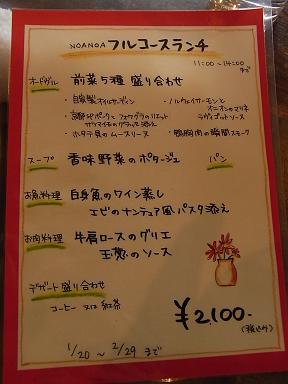 NOANOA フルコースランチ
11:00〜14:00
まで
オードヴル 前菜5種 盛り合わせ
・自家製オイルサーディン
・ノルウェイサーモンと
オニオンのマリネ
ラヴィゴットソース
・京都ポークとフォワグラのリエット
サツマイモのグラッセ添え
・ホタテ貝のムースリーヌ
・鴨胸肉の瞬間スモーク
スープ 香味野菜のポタージュ パン
お魚料理 白身魚のワイン蒸し
エビのナンチュア風パスタ添え
お肉料理 牛肩ロースのグリエ
玉葱のソース
デザート盛り合わせ
コーヒー 又は 紅茶
¥2,100-
(税込み)
1/20 〜 2/29 まで